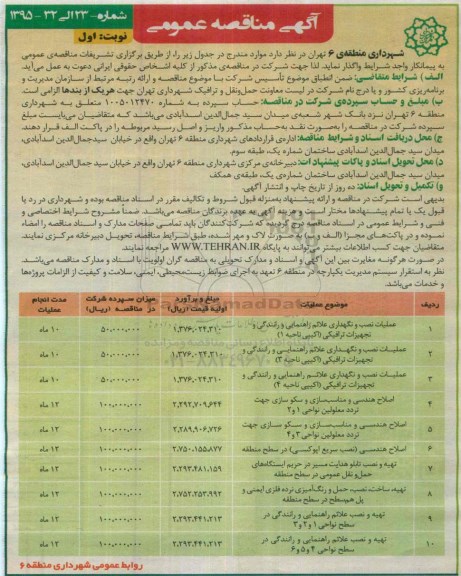 آگهی مناقصه عمومی
شماره- ۲۳ الی ۳۲ -۱۳۹۵
نوبت: اول
شهرداری منطقه‌ی ۶ تهران در نظر دارد موارد مندرج در جدول زیر را، از طریق برگزاری تشریفات مناقصه‌ی عمومی
به پیمانکار واجد شرایط واگذار نماید. لذا جهت شرکت در مناقصه‌ی مذکور از کلیه اشخاص حقوقی ایرانی دعوت به عمل می‌آید.
الف) شرایط متقاضی: ضمن الطباق موضوع تأسیس شرکت با موضوع مناقصه و ارائه رتبه مرتبط از سازمان مدیریت و
برنامه‌ریزی کشور و یا درج نام شرکت در لیست معاونت حمل‌ونقل و ترافیک شهرداری تهران جهت هریک از بندها الزامی است.
ب) مبلغ و حساب سپرده‌ی شرکت در مناقصه: حساب سپرده به شماره ۱۰۰۵۰۱۲۴۷۰ متعلق به شهرداری
منطقه ۶ تهران نزد بانک شهر شعبه‌ی میدان سید جمال‌الدین اسدآبادی می‌باشد که متقاضیان می‌بایست مبلغ
سپرده شرکت در مناقصه را بصورت نقد به‌حساب مذکور واریز و اصل رسید مربوطه را در پاکت الف قرار دهند.
ج) محل دریافت اسناد و شرایط مناقصه: اداری قراردادهای شهرداری منطقه ۶ تهران واقع در خیابان سیدجمال‌الدین اسدآبادی،
میدان سید جمال‌الدین اسدآبادی ساختمان شماره یک، طبقه سوم.
د) محل تحویل اسناد و پاکات پیشنهاد ات: دبیرخانه‌ی مرکزی شهرداری منطقه ۶ تهران واقع در خیابان سید جمال‌الدین اسدآبادی،
میدان سید جمال‌الدین اسدآبادی ساختمان شماره‌ی یک، طبقه‌ی همکف
و) تکمیل و تحویل اسناد: ده روز از تاریخ چاپ و انتشار آگهی.
بدیهی است شرکت در مناقصه و ارائه پیشنهاد به‌منزله قبول شروط و تکالیف مقرر در اسناد مناقصه بوده و شهرداری در رد یا
قبول یک یا تمام پیشنهادها مختار است و هزینه آگهی به عهده برندگان مناقصه می‌باشد. ضمناً مشروح شرایط اختصاصی و
فنی و شرایط عمومی در اسناد مناقصه درج گردیده که شرکت‌کنندگان باید تمامی صفحات مدارک و اسناد مناقصه را امضاء
نموده و در پاکت‌های مجزا (الف و ب) به صورت لاک و مهر شده، طبق شرایط مناقصه، تحویل دبیرخانه مرکزی نمایند.
متقاضیان جهت کسب اطلاعات بیشتر می‌توانند به پایگاه WWW.TEHRAN.IR مراجعه نمایند.
در صورت هرگونه مغایرت بین این آگهی و اسناد و مدارک تحویلی به مناقصه گران اولویت با اسناد و مدارک مناقصه می‌باشد.
نظر به استقرار سیستم مدیریت یکپارچه در منطقه ۶ تعهد به اجرای ضوابط زیست‌محیطی، ایمنی، سلامت و کیفیت از الزامات پروژه‌ها
و خدمات می‌باشد.
ردیف موضوع عملیات مبلغ و برآورد اولیه قیمت (ریال) میزان سپرده شرکت در مناقصه (ریال) مدت انجام عملیات
۱ عملیات نصب و نگهداری علائم راهنمایی و رانندگی و تجهیزات ترافیکی (اکیپی ناحیه ۱) ۱,۳۷۶,۰۲۴,۳۱۰ ۵۰,۰۰۰,۰۰۰ ۱۰ ماه
۲ عملیات نصب و نگهداری علائم راهنمایی و رانندگی و تجهیزات ترافیکی (اکیپی ناحیه ۳) ۱,۳۷۶,۰۲۴,۳۱۰ ۵۰,۰۰۰,۰۰۰ ۱۰ ماه
۳ عملیات نصب و نگهداری علائم راهنمایی و رانندگی و تجهیزات ترافیکی (اکیپی ناحیه ۴) ۱,۳۷۶,۰۲۴,۳۱۰ ۵۰,۰۰۰,۰۰۰ ۱۰ ماه
۴ اصلاح هندسی و مناسب‌سازی و سکو سازی جهت تردد معلولین نواحی ۱ و ۲ ۲,۲۹۲,۷۰۹,۶۴۴ ۱۰۰,۰۰۰,۰۰۰ ۱۲ ماه
۵ اصلاح هندسی و مناسب‌سازی و سکو سازی جهت تردد معلولین نواحی ۳ و ۴ ۲,۲۸۹,۹۰۶,۷۲۶ ۱۰۰,۰۰۰,۰۰۰ ۱۲ ماه
۶ اصلاح هندسی (نصب سریع اپوکسی) در سطح منطقه ۲,۷۵۰,۱۵۵,۸۷۷ ۱۰۰,۰۰۰,۰۰۰ ۱۲ ماه
۷ تهیه و نصب تابلو هدایت مسیر در حریم ایستگاه‌های حمل‌ونقل عمومی در سطح منطقه ۲,۲۹۳,۴۸۱,۱۵۹ ۱۰۰,۰۰۰,۰۰۰ ۱۲ ماه
۸ تهیه، ساخت، نصب، حمل و رنگ‌آمیزی نرده فلزی ایمنی و پل هم‌سطح در سطح منطقه ۲,۷۵۲,۲۵۳,۹۹۲ ۱۰۰,۰۰۰,۰۰۰ ۱۲ ماه
۹ تهیه و نصب علائم راهنمایی و رانندگی در سطح نواحی ۱ و ۲ و ۳ ۲,۲۹۳,۴۴۱,۲۱۳ ۱۰۰,۰۰۰,۰۰۰ ۱۲ ماه
۱۰ تهیه و نصب علائم راهنمایی و رانندگی در سطح نواحی ۴ و ۵ و ۶ ۲,۲۹۳,۴۴۱,۲۱۳ ۱۰۰,۰۰۰,۰۰۰ ۱۲ ماه
روابط عمومی شهرداری منطقه ۶